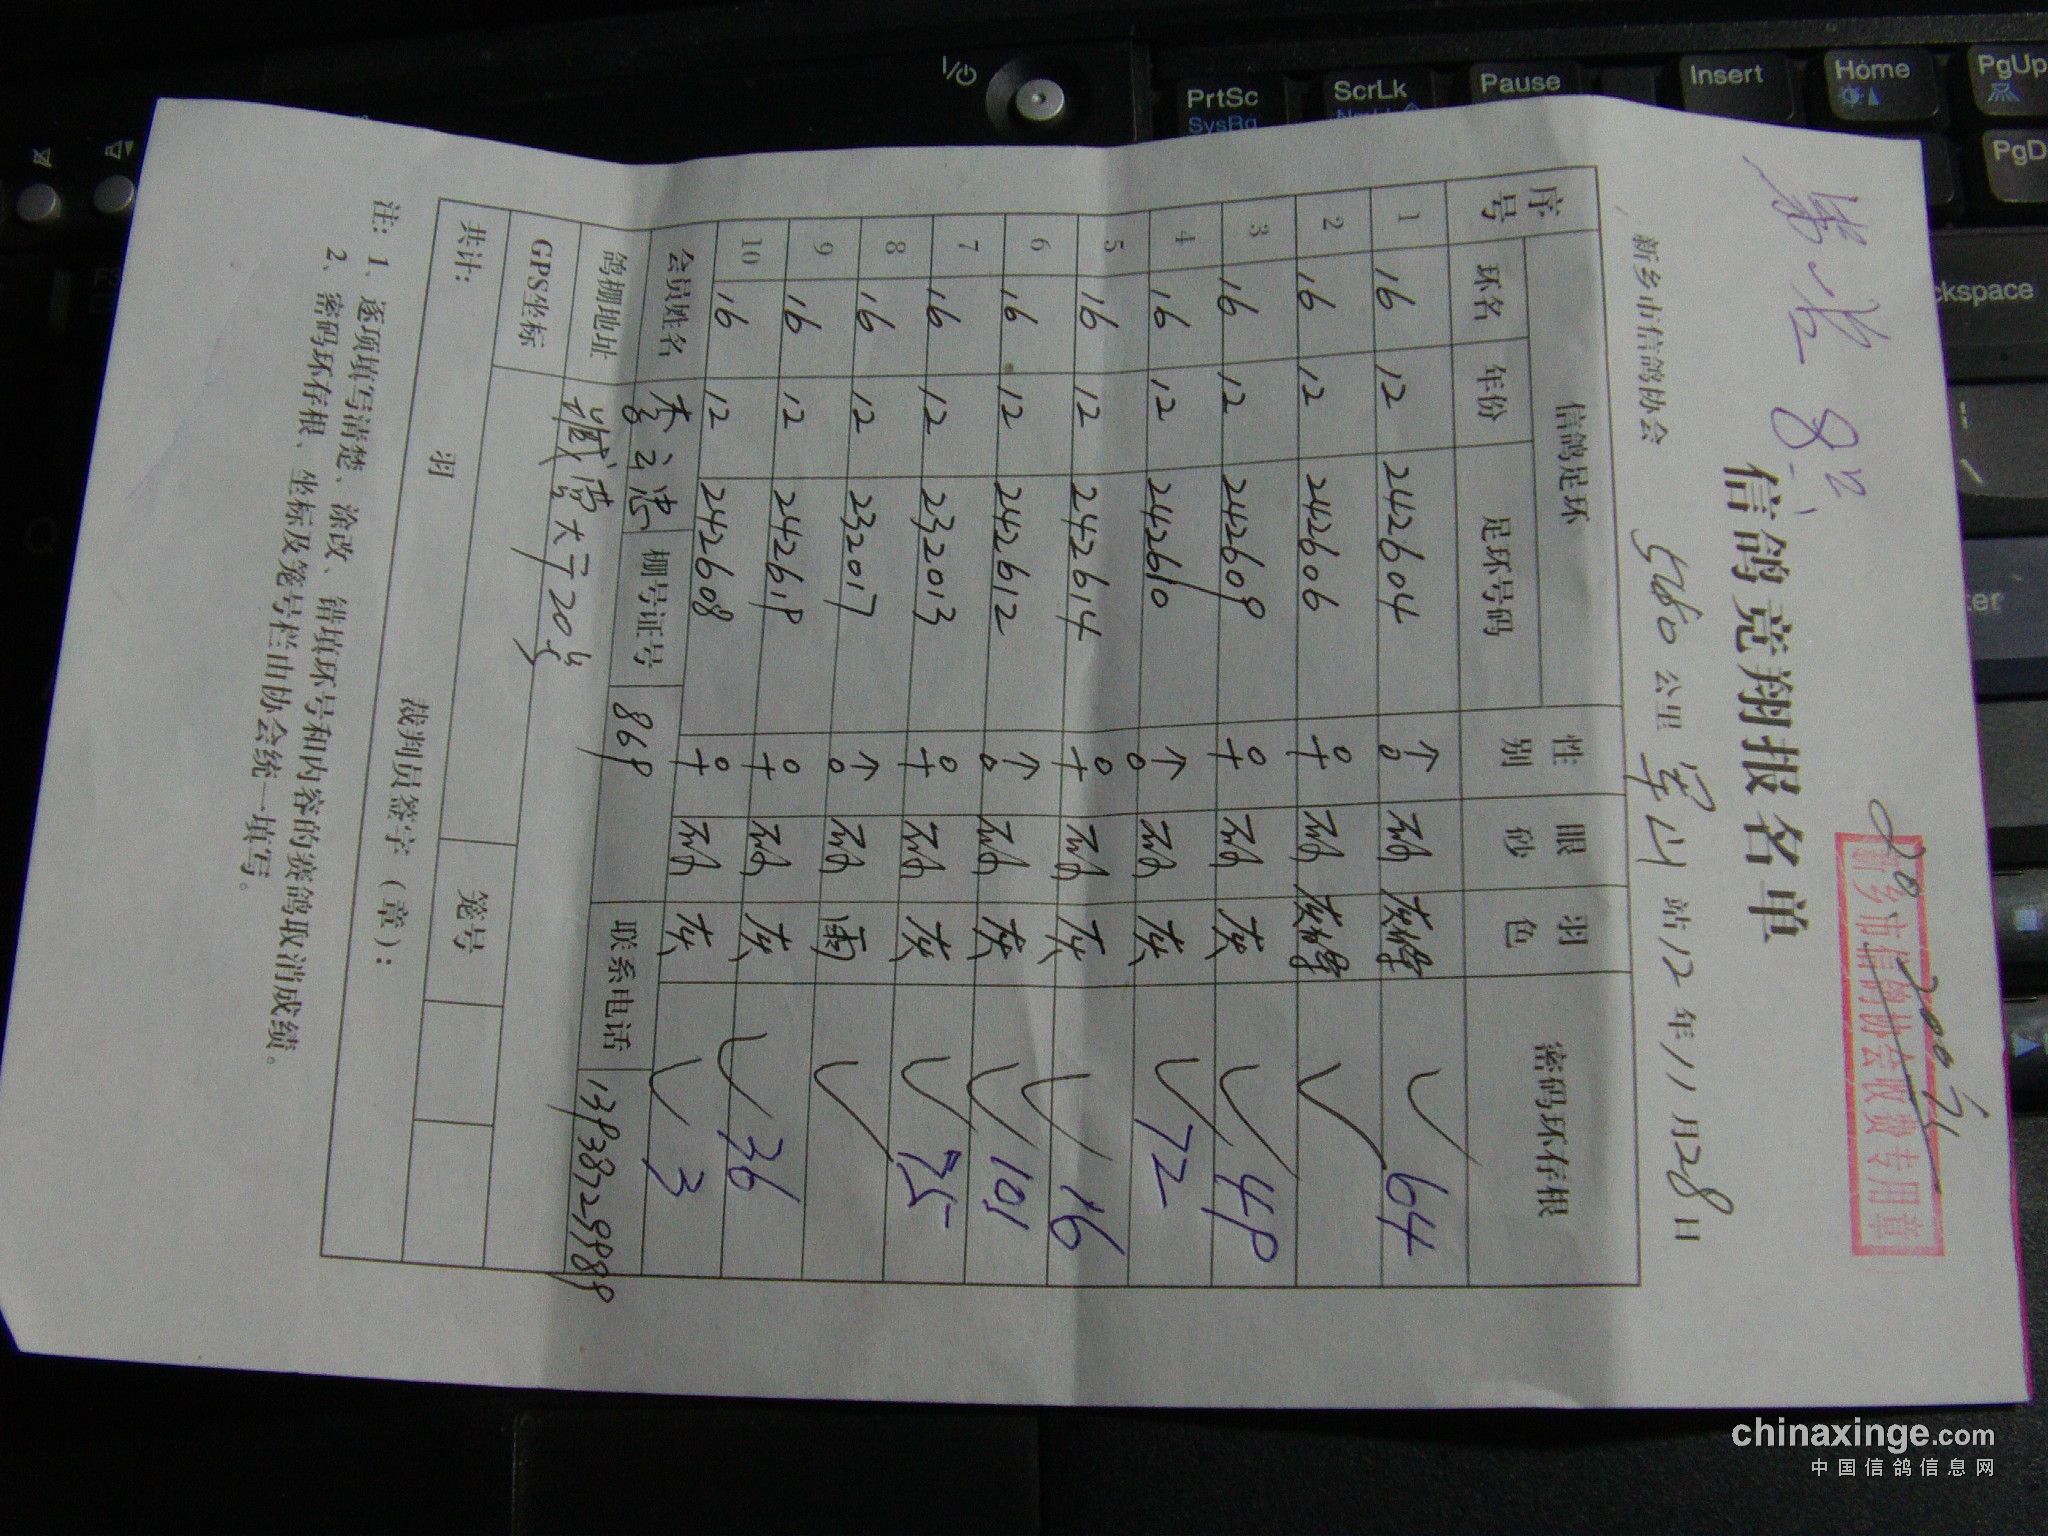 信鸽竞翔报名单
新乡市信鸽协会收费专用章
新乡市信鸽协会 560 公里 军山 站 12 年 11 月 28 日
序号 信鸽足环 性别 眼砂 羽色 密码环存根
环名 年份 足环号码
1 16 12 242604 ♂ 砂 64
2 16 12 242606 ♀ 砂 ✓
3 16 12 242609 ♀ 砂 灰 ✓ 49
4 16 12 242610 ♂ 砂 灰 ✓ 72
5 16 12 242614 ♀ 砂 灰 ✓ 16
6 16 12 242612 ♂ 砂 灰 ✓ 101
7 16 12 232013 ♀ 砂 灰 ✓ 75
8 16 12 232017 ♂ 砂 雨 ✓
9 16 12 242619 ♀ 砂 灰 ✓ 36
10 16 12 242608 ♀ 砂 灰 ✓ 3
会员姓名 李云忠 棚号证号 869 联系电话
鸽棚地址 20号
GPS坐标
共计: 羽 笼号
裁判员签字（章）:
注: 1、逐项填写清楚、涂改、错填环号和内容的赛鸽取消成绩。
2、密码环存根、坐标及笼号栏由协会统一填写。
PrtSc
SysRq
ScrLk
Pause
Insert
Home
PgUp
PgD
ckspace
chinaxinge.com
中国信鸽信息网